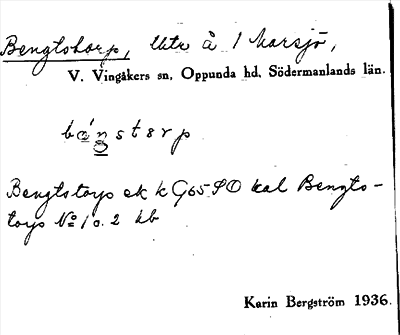 Bengtstorp, Uts å 1 Marsjö,
V. Vingåkers sn. Oppunda hd. Södermanlands län.
bäŋstɜrp
Bengtstorp ek k G65 SO kal Bengts-
torp No 1 o. 2 kb
Karin Bergström 1936.